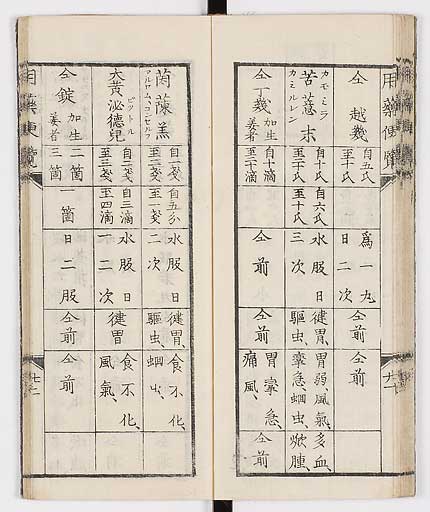 用藥便覽
仝 越幾
自五氏
至十氏
爲一丸
日二次
仝前
仝前
カモミラ
苦薏末
カミルレン
自十氏
至三十氏
自六氏
至十氏
水服日
三次
健胃、
驅虫、
胃弱、風氣、多血、
攣急、蛔虫、焮腫
仝丁幾
加生
姜者
自十滴
至二十滴
仝前
仝前
胃攣急、
痛風、
仝前
茵蔯羔
マルロム、コンセルフ
自一戔
至二戔
自五分
至一戔
水服日
二次
健胃、
驅虫、
食不化、
蛔虫、
ビットル
大黄泌德兒
自二戔
至三戔
自三滴
至四滴
水服日
一二次
健胃
食不化、
風氣、
仝錠
加生
姜者
二箇
三箇
一箇
日二服
仝前
仝前
用藥便覽